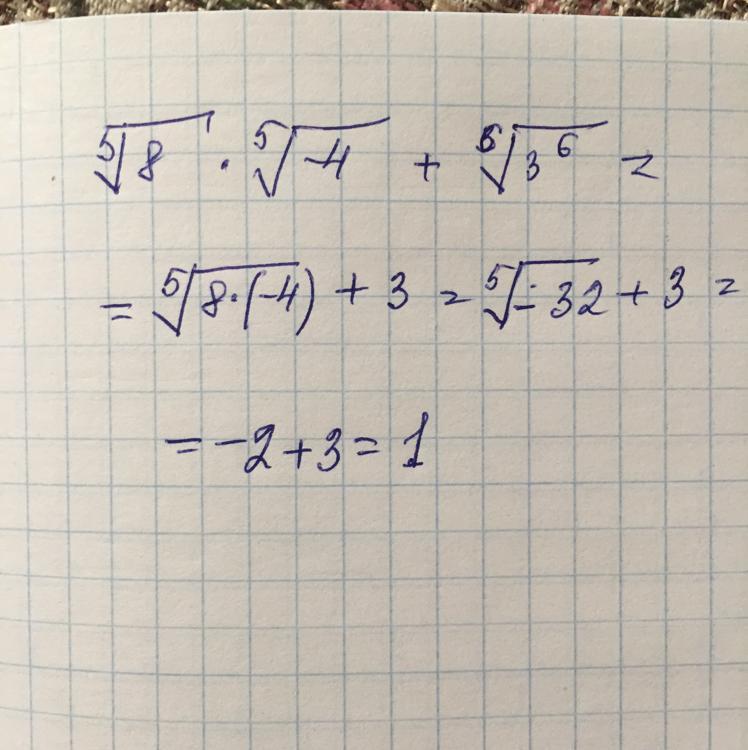 ⁵√8 · ⁵√-4 + ⁶√3⁶ =
= ⁵√8·(-4) + 3 = ⁵√-32 + 3 =
= -2 + 3 = 1